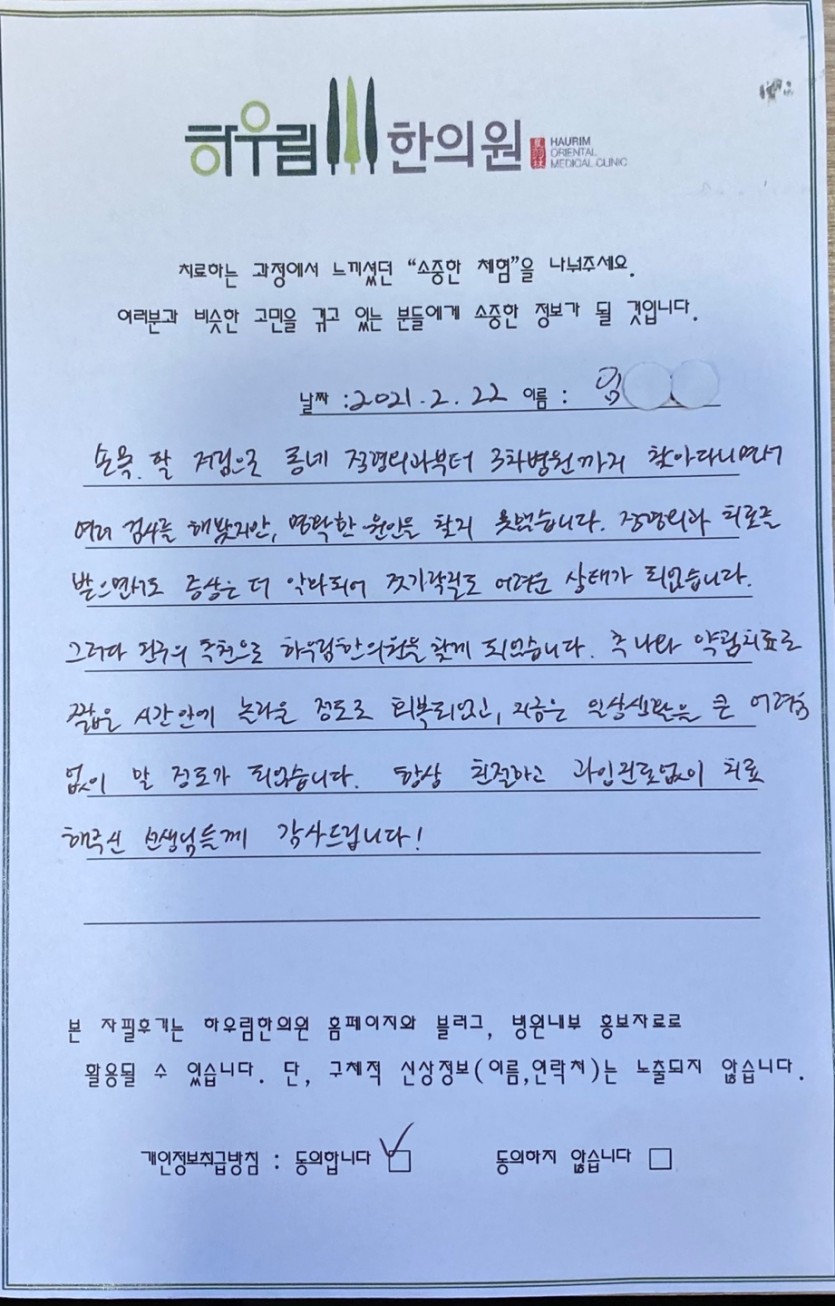 하우림 한의원
HAURIM
ORIENTAL
MEDICAL CLINIC
치료하는 과정에서 느끼셨던 “소중한 체험”을 나눠주세요.
여러분과 비슷한 고민을 겪고 있는 분들에게 소중한 정보가 될 것입니다.
날짜 : 2021. 2. 22 이름 : 임
손목, 팔 저림으로 동네 정형외과부터 3차병원까지 찾아다니면서
여러 검사를 해봤지만, 명확한 원인을 찾지 못했습니다. 정형외과 치료를
받으면서도 증상은 더 악화되어 젓가락질도 어려운 상태가 되었습니다.
그러다 친구의 추천으로 하우림한의원을 찾게 되었습니다. 추나와 약침치료로
짧은 시간안에 놀라울 정도로 회복되었고, 지금은 일상생활을 큰 어려움
없이 할 정도가 되었습니다. 항상 친절하고 과잉진료없이 치료
해주신 선생님들께 감사드립니다!
본 자필후기는 하우림한의원 홈페이지와 블러그, 병원내부 홍보자료로
활용될 수 있습니다. 단, 구체적 신상정보(이름,연락처)는 노출되지 않습니다.
개인정보취급방침 : 동의합니다 동의하지 않습니다